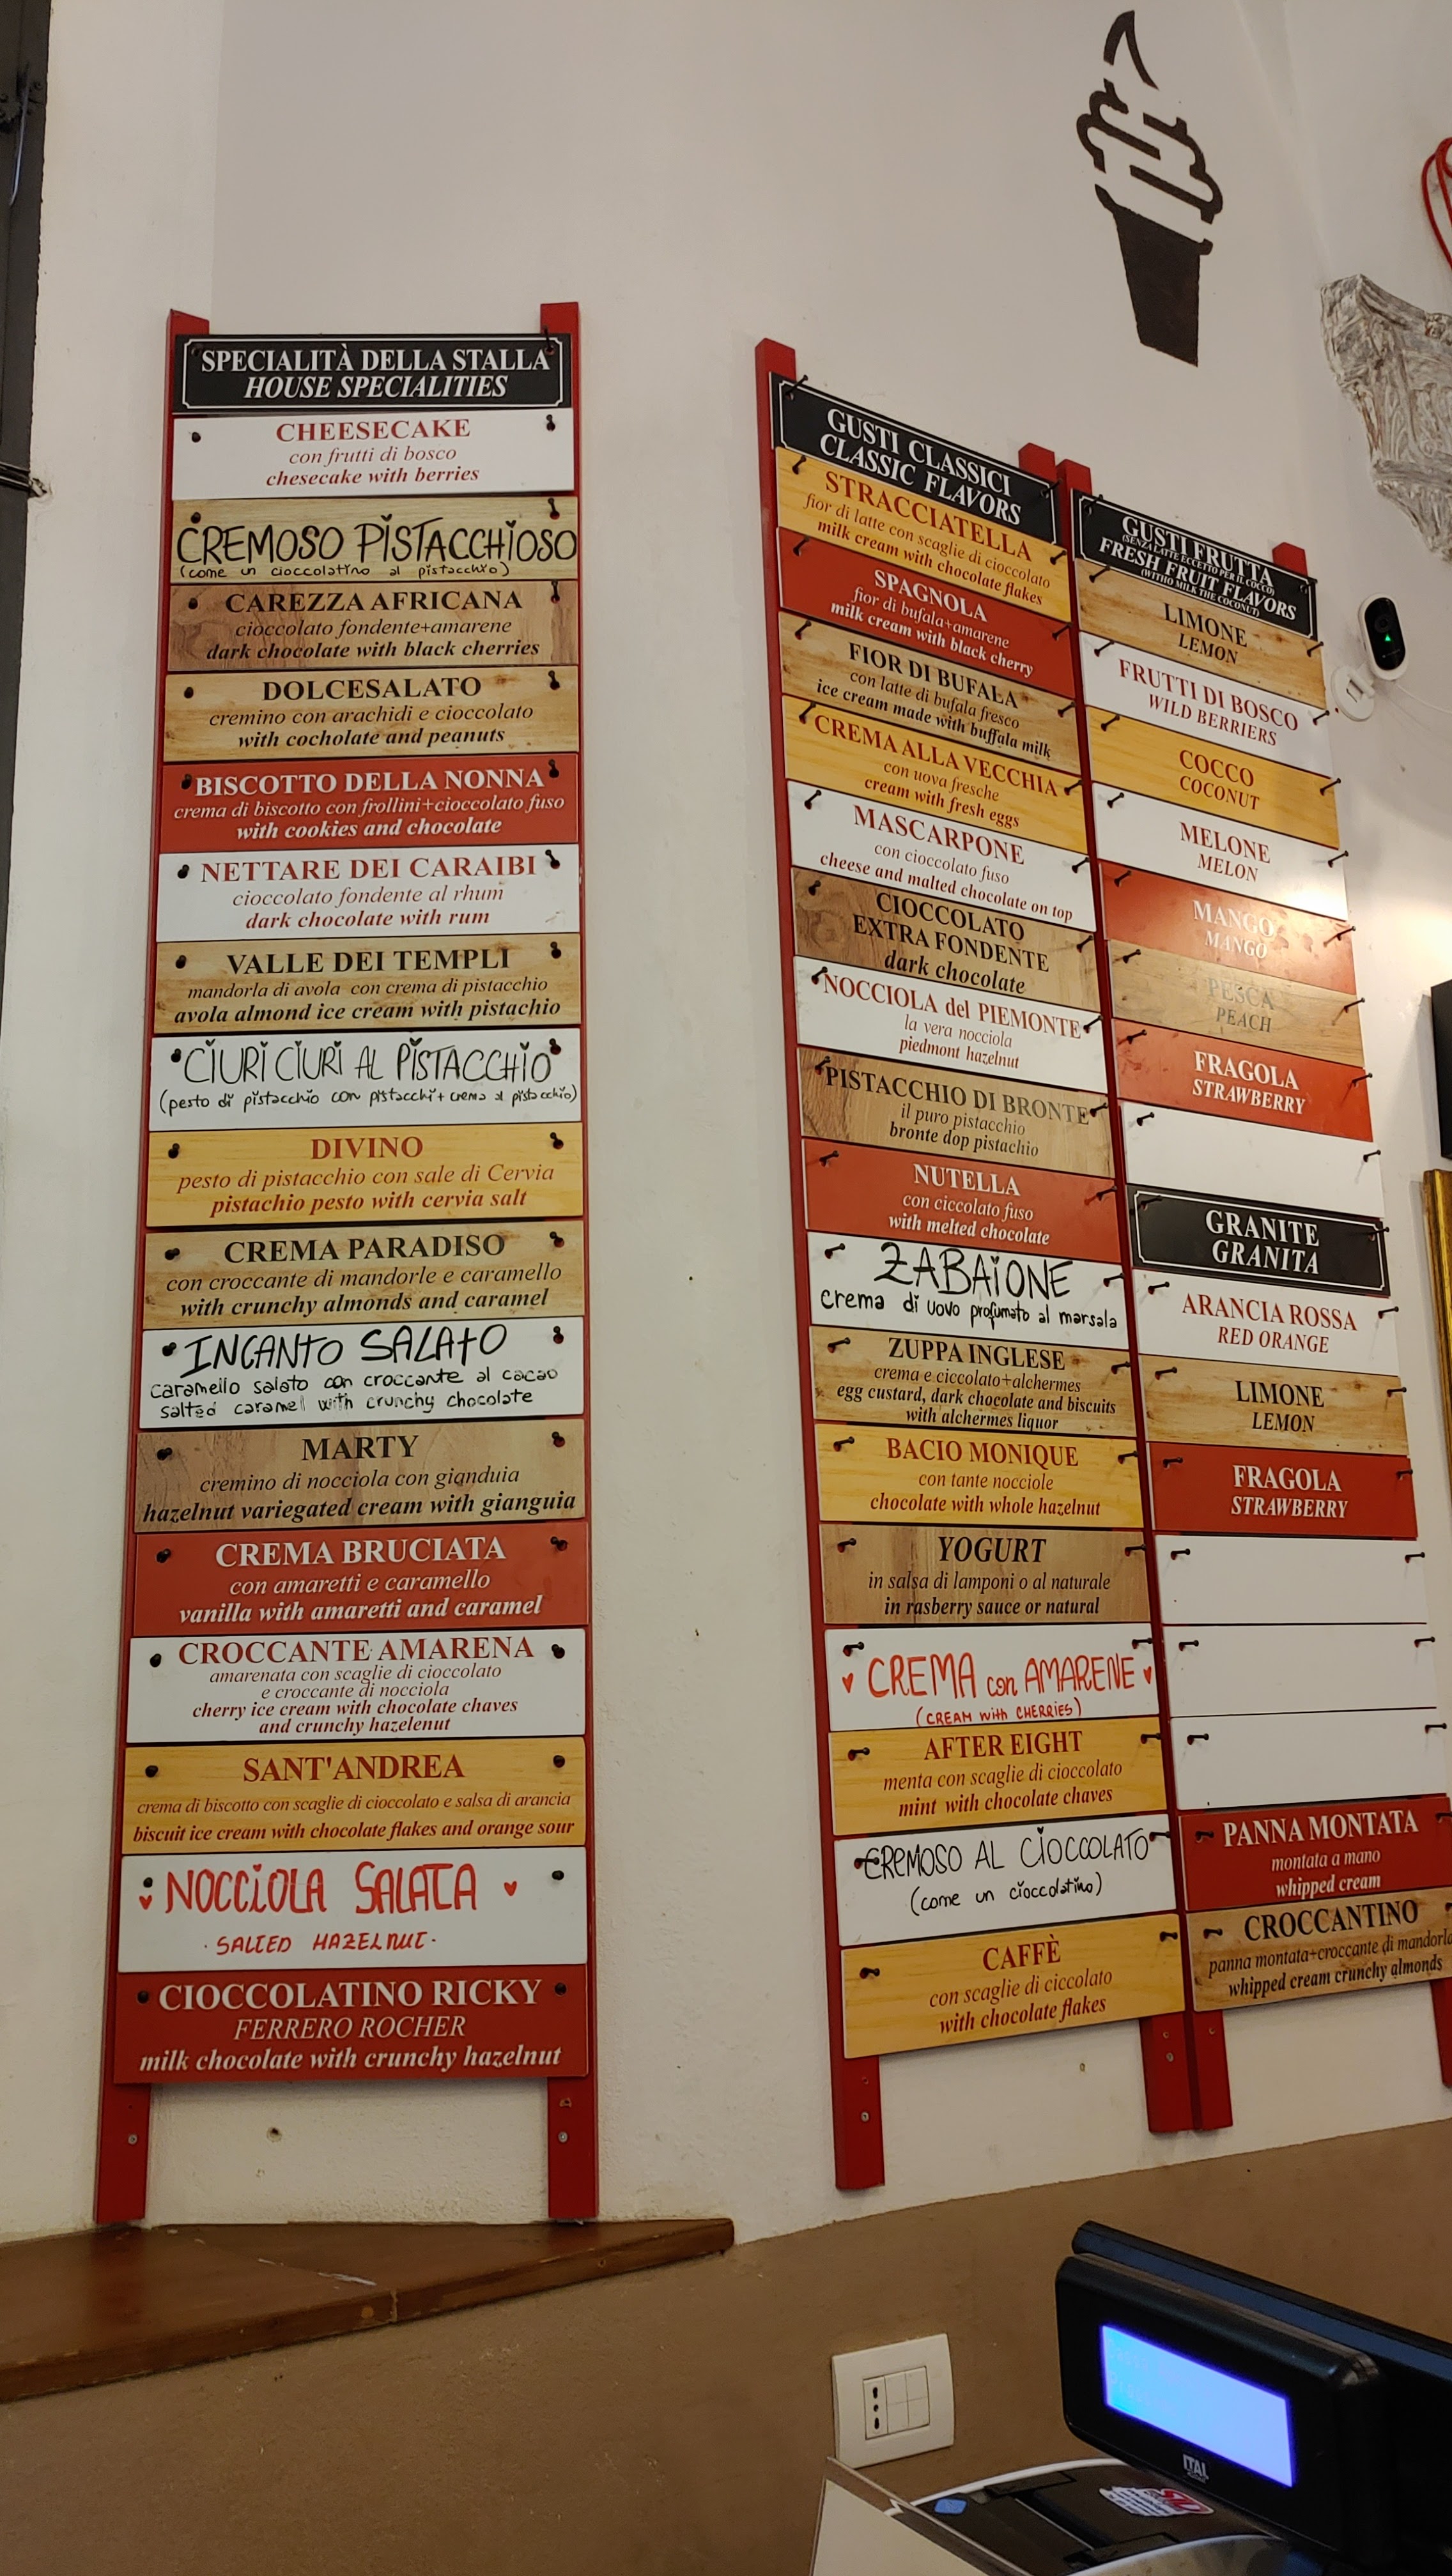 SPECIALITÀ DELLA STALLA
HOUSE SPECIALITIES
CHEESECAKE
con frutti di bosco
chesecake with berries
CREMOSO PISTACCHIOSO
(come un cioccolatino al pistacchio)
CAREZZA AFRICANA
cioccolato fondente+amarene
dark chocolate with black cherries
DOLCESALATO
cremino con arachidi e cioccolato
with cocholate and peanuts
BISCOTTO DELLA NONNA
crema di biscotto con frollini+cioccolato fuso
with cookies and chocolate
NETTARE DEI CARAIBI
cioccolato fondente al rhum
dark chocolate with rum
VALLE DEI TEMPLI
mandorla di avola con crema di pistacchio
avola almond ice cream with pistachio
CIURI CIURI AL PISTACCHIO
(pesto di pistacchio con pistacchi+crema al pistacchio)
DIVINO
pesto di pistacchio con sale di Cervia
pistachio pesto with cervia salt
CREMA PARADISO
con croccante di mandorle e caramello
with crunchy almonds and caramel
INCANTO SALATO
caramello salato con croccante al cacao
salted caramel with crunchy chocolate
MARTY
cremino di nocciola con gianduia
hazelnut variegated cream with gianguia
CREMA BRUCIATA
con amaretti e caramello
vanilla with amaretti and caramel
CROCCANTE AMARENA
amarenata con scaglie di cioccolato
e croccante di nocciola
cherry ice cream with chocolate chaves
and crunchy hazelenut
SANT'ANDREA
crema di biscotto con scaglie di cioccolato e salsa di arancia
biscuit ice cream with chocolate flakes and orange sour
NOCCIOLA SALATA
· SALTED HAZELNUT ·
CIOCCOLATINO RICKY
FERRERO ROCHER
milk chocolate with crunchy hazelnut
GUSTI CLASSICI
CLASSIC FLAVORS
STRACCIATELLA
fior di latte con scaglie di cioccolato
milk cream with chocolate flakes
SPAGNOLA
fior di bufala+amarene
milk cream with black cherry
FIOR DI BUFALA
con latte di bufala fresco
ice cream made with buffala milk
CREMA ALLA VECCHIA
con uova fresche
cream with fresh eggs
MASCARPONE
con cioccolato fuso
cheese and malted chocolate on top
CIOCCOLATO
EXTRA FONDENTE
dark chocolate
NOCCIOLA del PIEMONTE
la vera nocciola
piedmont hazelnut
PISTACCHIO DI BRONTE
il puro pistacchio
bronte dop pistachio
NUTELLA
con ciccolato fuso
with melted chocolate
ZABAIONE
crema di uovo profumato al marsala
ZUPPA INGLESE
crema e ciccolato+alchermes
egg custard, dark chocolate and biscuits
with alchermes liquor
BACIO MONIQUE
con tante nocciole
chocolate with whole hazelnut
YOGURT
in salsa di lamponi o al naturale
in rasberry sauce or natural
CREMA con AMARENE
(CREAM with CHERRIES)
AFTER EIGHT
menta con scaglie di cioccolato
mint with chocolate chaves
CREMOSO AL CIOCCOLATO
(come un cioccolatino)
CAFFÈ
con scaglie di ciccolato
with chocolate flakes
GUSTI FRUTTA
(SENZA LATTE ECCETTO PER IL COCCO)
FRESH FRUIT FLAVORS
(WITHO MILK THE COCONUT)
LIMONE
LEMON
FRUTTI DI BOSCO
WILD BERRIERS
COCCO
COCONUT
MELONE
MELON
MANGO
MANGO
PESCA
PEACH
FRAGOLA
STRAWBERRY
GRANITE
GRANITA
ARANCIA ROSSA
RED ORANGE
LIMONE
LEMON
FRAGOLA
STRAWBERRY
PANNA MONTATA
montata a mano
whipped cream
CROCCANTINO
panna montata+croccante di mandorla
whipped cream crunchy almonds